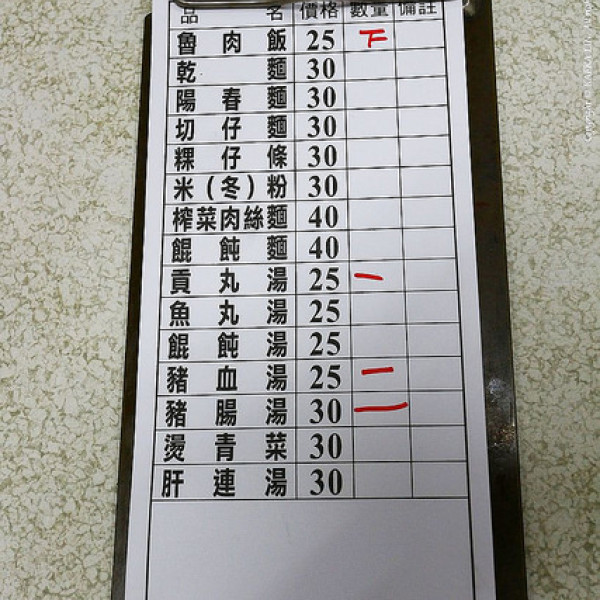 品名 價格 數量 備註
魯肉飯 25 下
乾麵 30
陽春麵 30
切仔麵 30
粿仔條 30
米(冬)粉 30
榨菜肉絲麵 40
餛飩麵 40
貢丸湯 25 一
魚丸湯 25
餛飩湯 25
豬血湯 25 一
豬腸湯 30 一
燙青菜 30
肝連湯 30